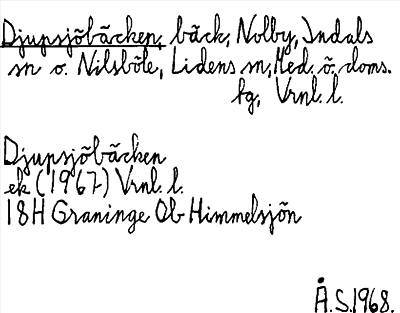 Djupsjöbäcken, bäck, Nolby, Indals
sn o. Nilsböle, Lidens sn, Med. ö. doms.
fg, Vrnl. l.
Djupsjöbäcken
ek (1967) Vrnl. l.
18H Graninge Ob Himmelsjön
Å.S.1968.